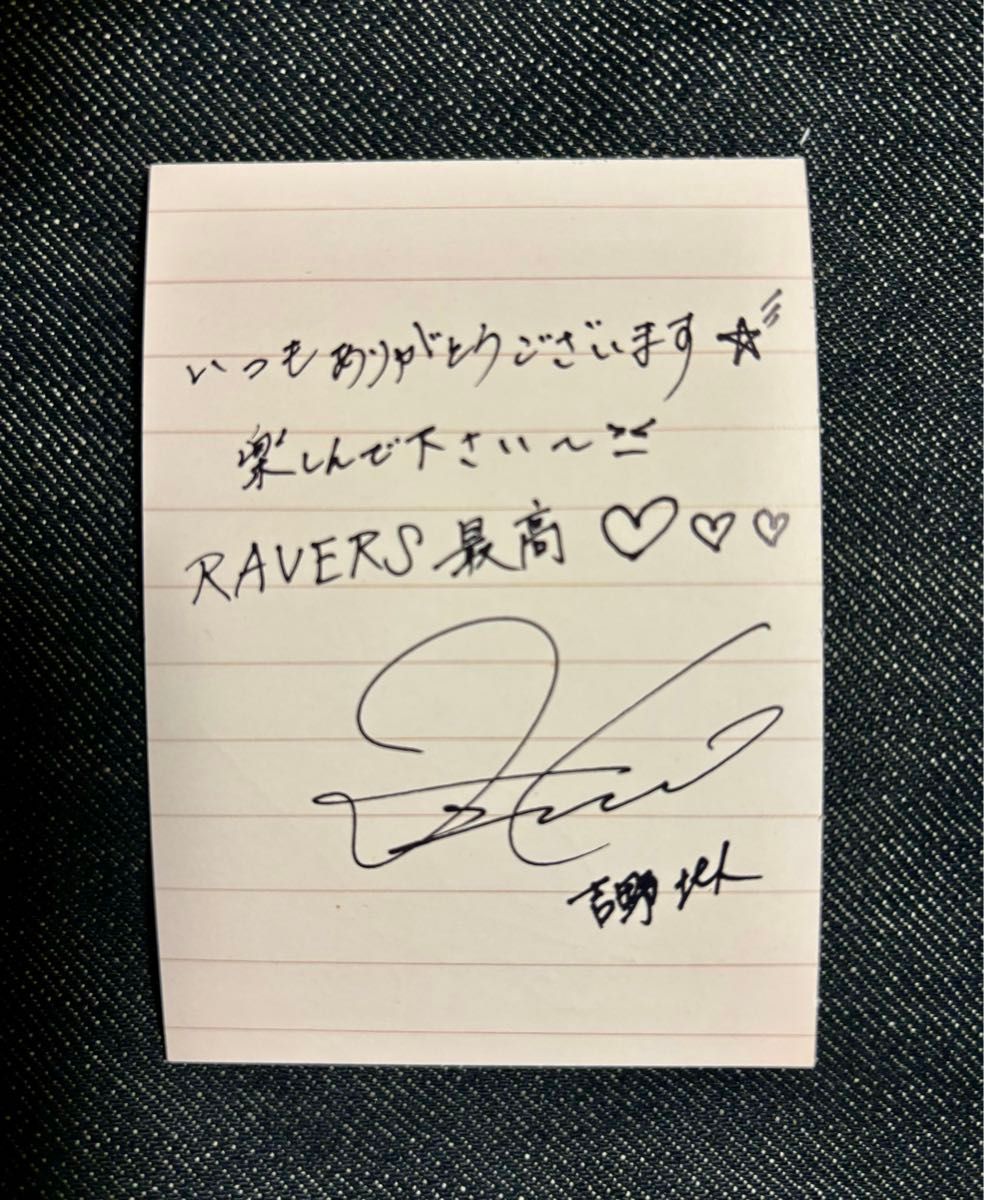 いつもありがとうございます☆
楽しんで下さい〜
RAVERS 最高 ♡♡♡
吉野北人